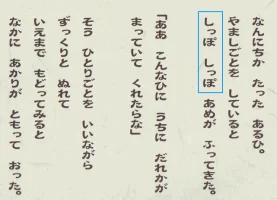 なんにちか たった あるひ。
やましごとを していると
しっぽ しっぽ あめが ふってきた。
「ああ こんなひに うちに だれかが
まっていて くれたらな」
そう ひとりごとを いいながら
ずっくりと ぬれて
いえまで もどってみると
なかに あかりが ともって おった。